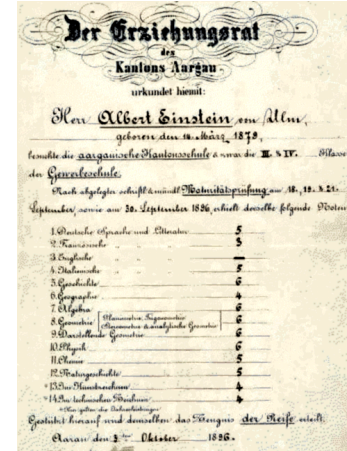 Der Erziehungsrat
des
Kantons Aargau
urkundet hiemit:
Herr Albert Einstein von Ulm,
geboren den 14. März 1879,
besuchte die aargauische Kantonsschule & zwar die III. & IV. Klasse
der Gewerbeschule.
Nach abgelegter schriftl. & mündl. Maturitätsprüfung am 18., 19. & 21.
September, sowie am 30. September 1896 erhielt derselbe folgende Noten:
1. Deutsche Sprache und Litteratur 5
2. Französische " " 3
3. Englische " " —
4. Italienische " " 5
5. Geschichte 6
6. Geographie 4
7. Algebra 6
8. Geometrie Planimetrie, Trigonometrie 6
Stereometrie & analytische Geometrie
9. Darstellende Geometrie 6
10. Physik 6
11. Chemie 5
12. Naturgeschichte 5
*13. Im Kunstzeichnen 4
*14. Im technischen Zeichnen 4
* Hier gelten die Jahresleistungen.
Gestützt hierauf wird demselben das Zeugnis der Reife erteilt.
Aarau den 3ten Oktober 1896.